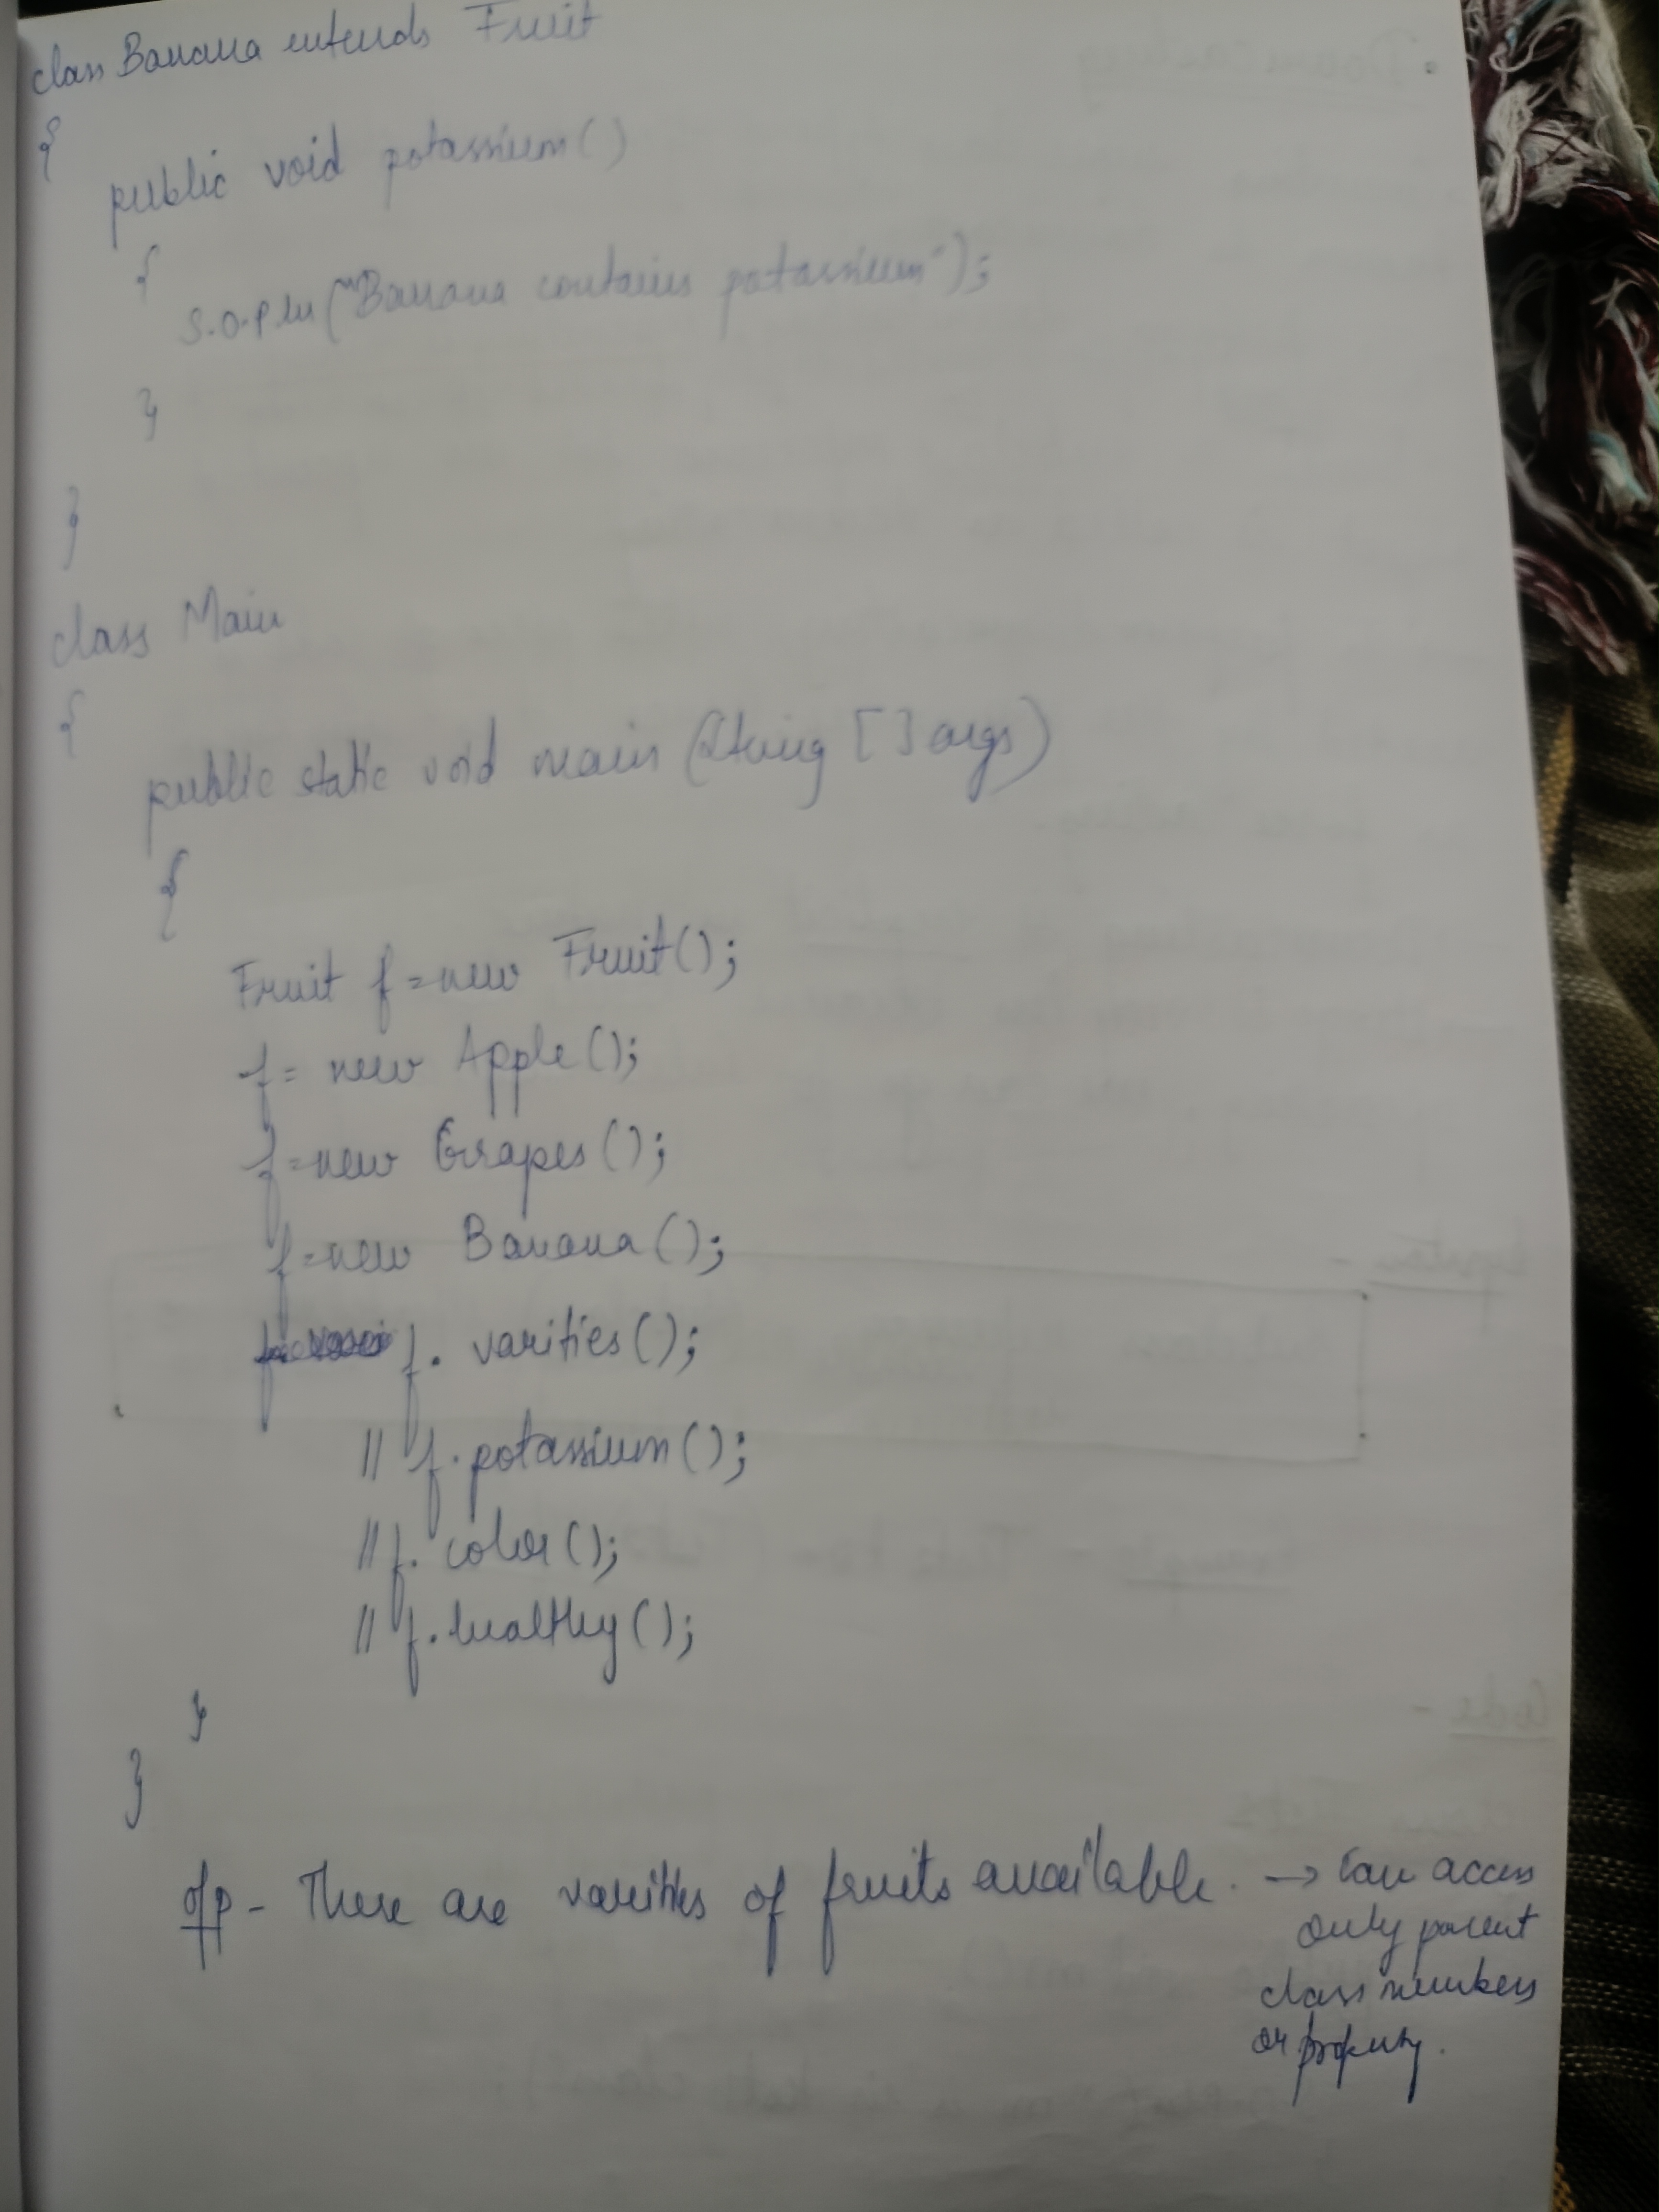 class Banana extends Fruit
{
public void potassium()
{
S.O.Pln("Banana contains potassium");
}
}
class Main
{
public static void main (String [] args)
{
Fruit f = new Fruit();
f = new Apple();
f = new Grapes();
f = new Banana();
f. varities();
// f. potassium();
// f. color();
// f. healthy();
}
}
o/p - There are varities of fruits available. → Can access
only parent
class members
or property.